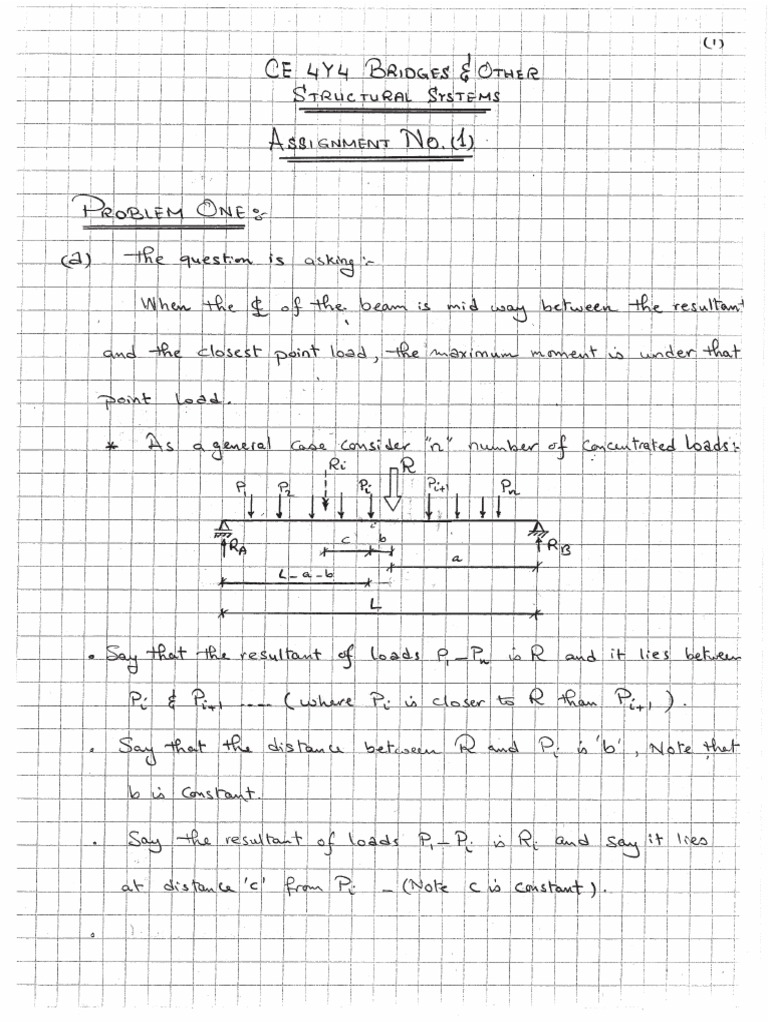 (1)
CE 4Y4 BRIDGES & OTHER
STRUCTURAL SYSTEMS
ASSIGNMENT NO.(1)
PROBLEM ONE:-
(a) the question is asking:-
When the ℄ of the beam is mid way between the resultant
and the closest point load, the maximum moment is under that
point load.
* As a general case consider "n" number of concentrated loads:-
Ri R
P1 P2 Pi Pi+1 Pn
RA c b RB
a
L-a-b
L
• Say that the resultant of loads P1-Pn is R and it lies between
Pi & Pi+1 ---- (where Pi is closer to R than Pi+1).
• Say that the distance between R and Pi is 'b', Note that
b is constant.
• Say the resultant of loads P1-Pi is Ri and say it lies
at distance 'c' from Pi - (Note c is constant).
•